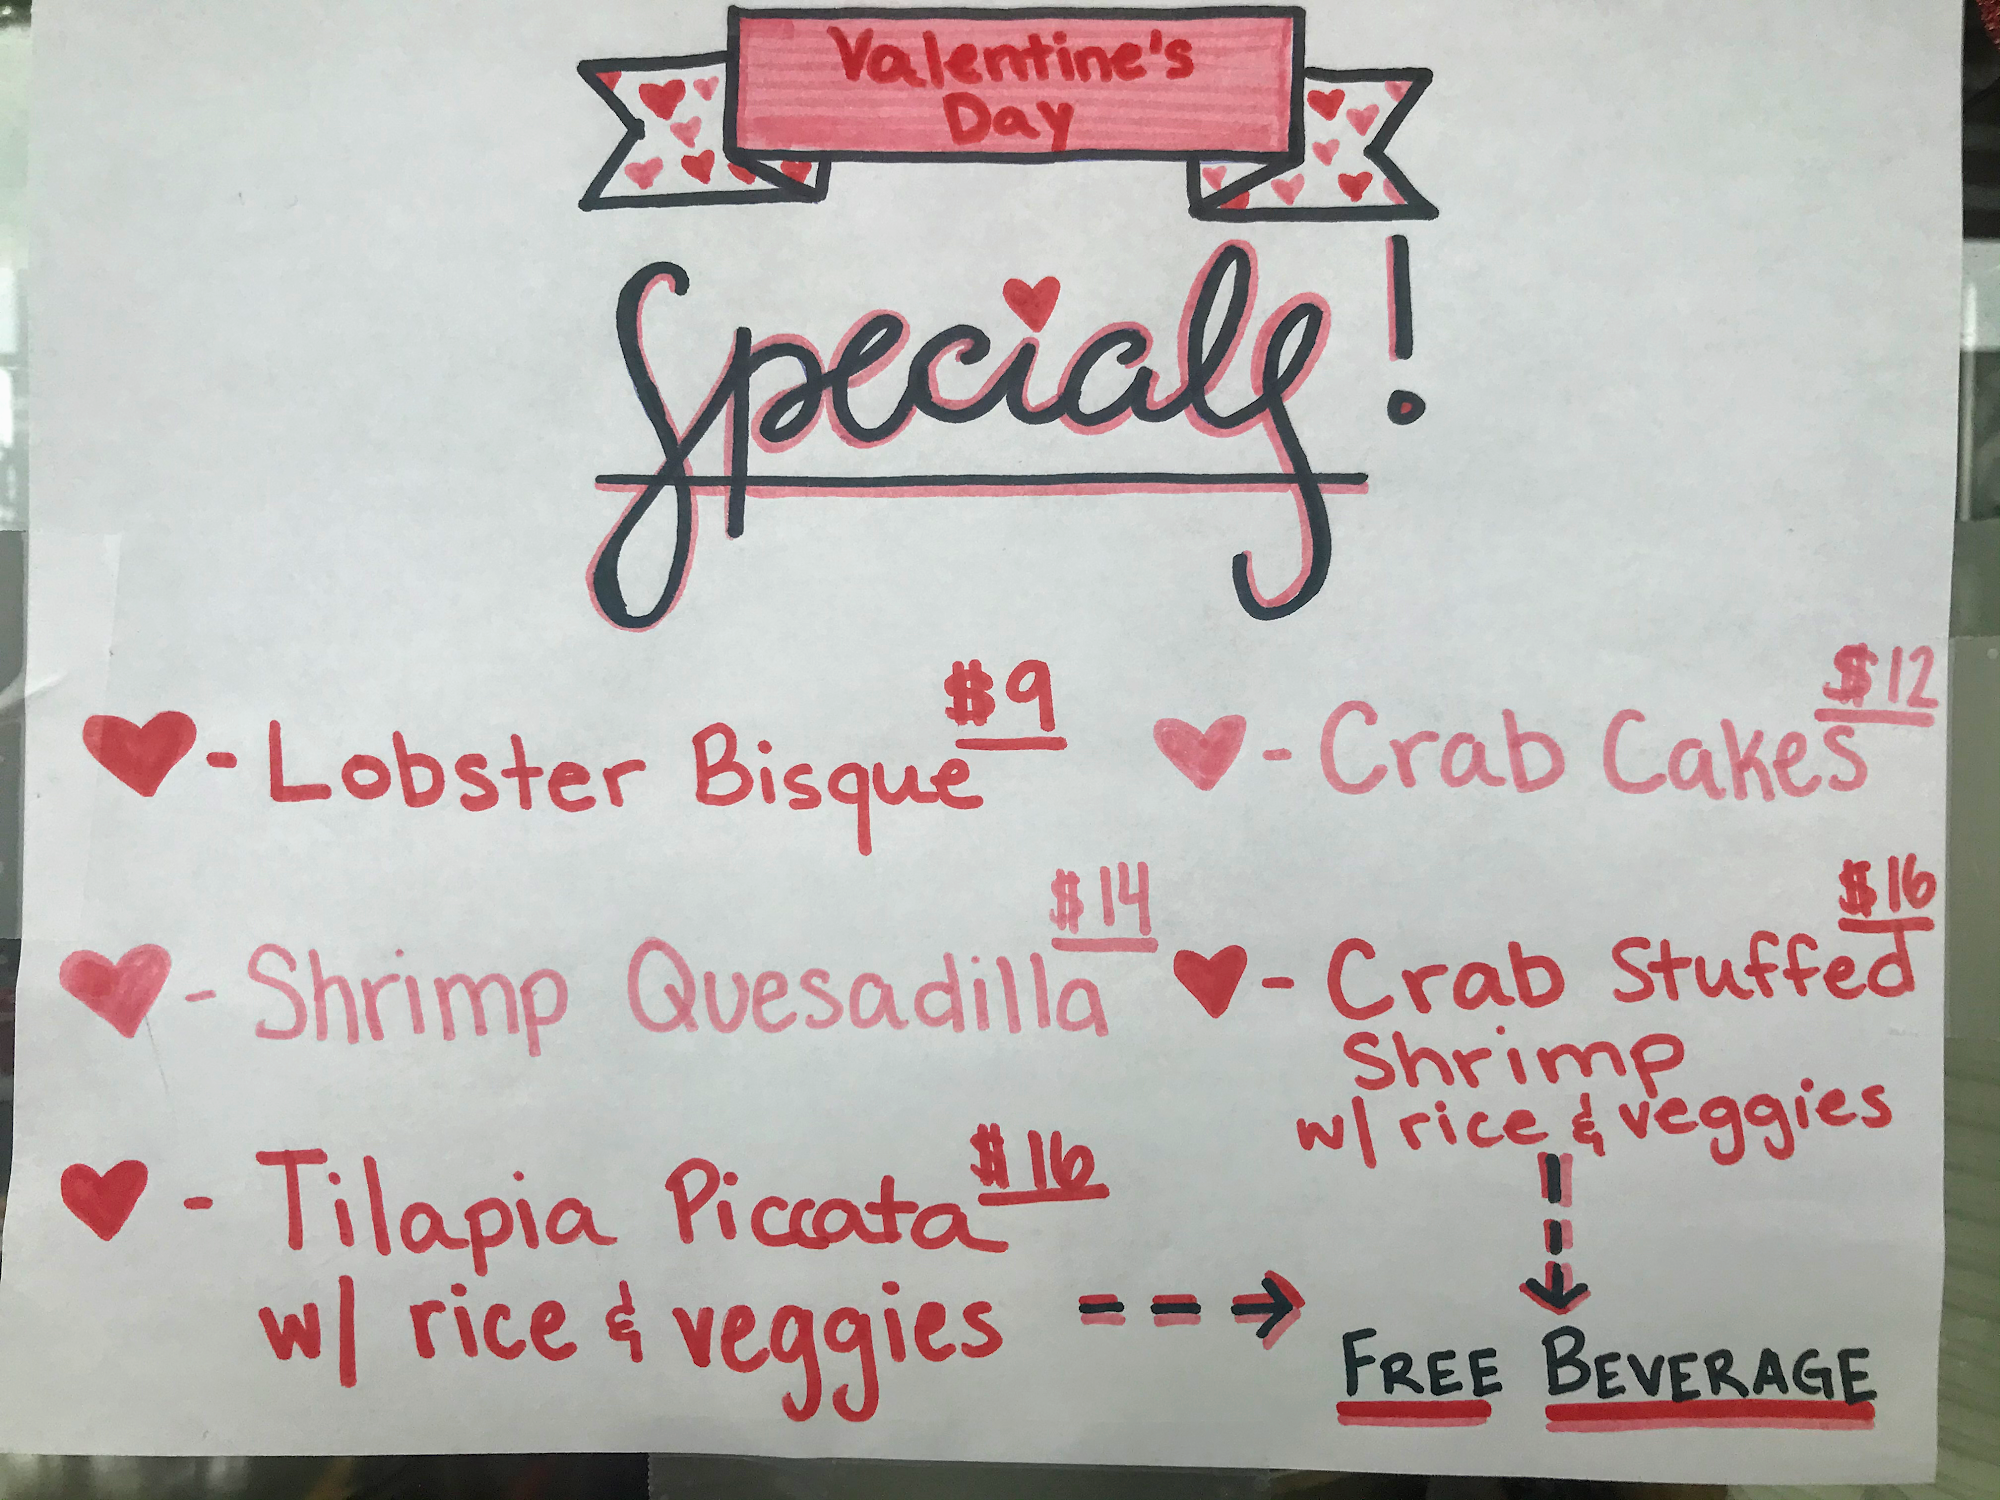 Valentine's
Day
Specials!
- Lobster Bisque $9
- Crab Cakes $12
- Shrimp Quesadilla $14
- Crab Stuffed $16
Shrimp
w/ rice & veggies
- Tilapia Piccata $16
w/ rice & veggies
FREE BEVERAGE